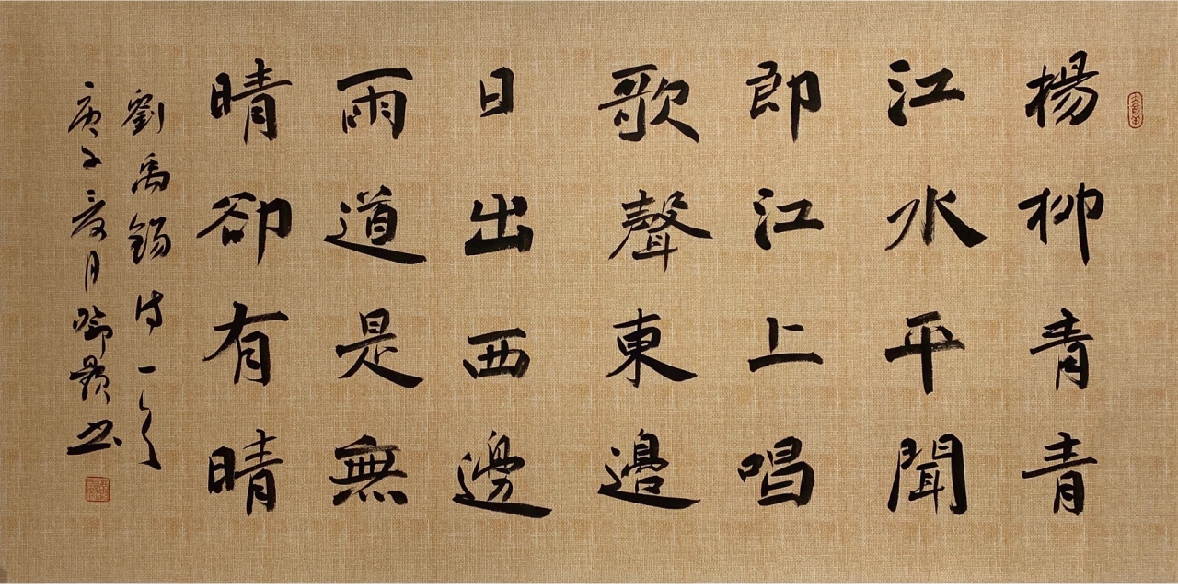 楊柳青青
江水平聞
郎江上唱
歌聲東邊
日出西邊
雨道是無
晴卻有晴
劉禹錫诗一首
庚子夏月书